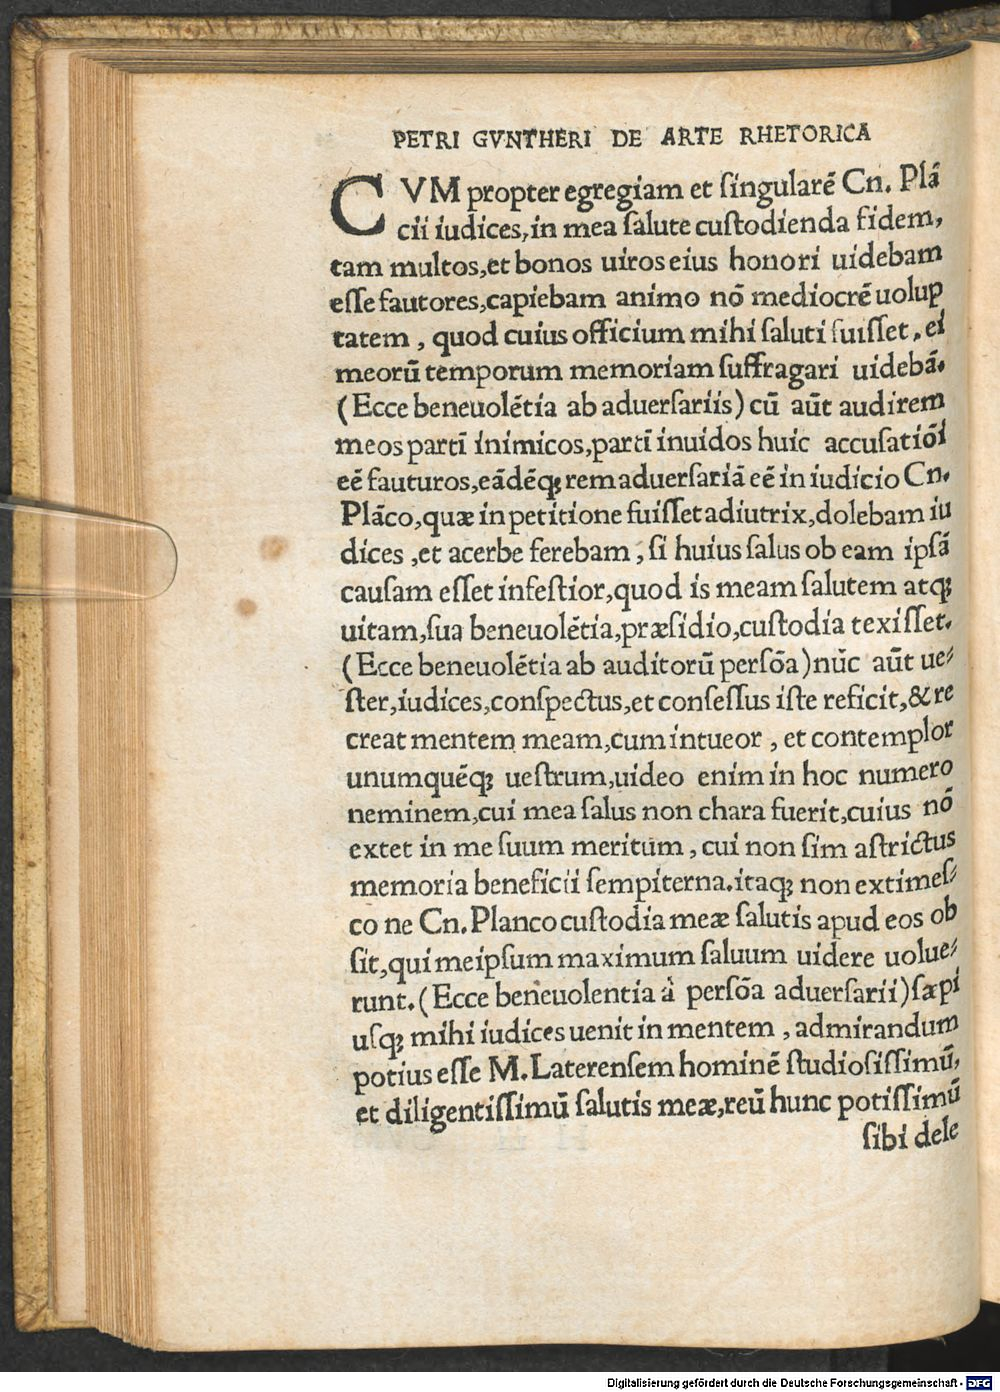 PETRI GVNTHERI DE ARTE RHETORICA
CVM propter egregiam et singularē Cn. Plā
cii iudices, in mea salute custodienda fidem,
tam multos, et bonos uiros eius honori uidebam
esse fautores, capiebam animo nō mediocrē uolup
tatem, quod cuius officium mihi saluti fuisset, ei
meorū temporum memoriam suffragari uidebā.
(Ecce beneuolētia ab aduersariis) cū aūt audirem
meos partī inimicos, partī inuidos huic accusatiōi
eē fauturos, eādēq; rem aduersariā eē in iudicio Cn.
Plāco, quæ in petitione fuisset adiutrix, dolebam iu
dices, et acerbe ferebam, si huius salus ob eam ipsā
causam esset infestior, quod is meam salutem atq;
uitam, sua beneuolētia, præsidio, custodia texisset.
(Ecce beneuolētia ab auditorū persōa) nūc aūt ue⸗
ster, iudices, conspectus, et consessus iste reficit, & re
creat mentem meam, cum intueor, et contemplor
unumquēq; uestrum, uideo enim in hoc numero
neminem, cui mea salus non chara fuerit, cuius nō
extet in me suum meritum, cui non sim astrictus
memoria beneficii sempiterna. itaq; non extimes⸗
co ne Cn. Planco custodia meæ salutis apud eos ob
sit, qui meipsum maximum saluum uidere uolue⸗
runt. (Ecce beneuolentia à persōa aduersarii) sæpi
usq; mihi iudices uenit in mentem, admirandum
potius esse M. Laterensem hominē studiosissimū,
et diligentissimū salutis meæ, reū hunc potissimū
sibi dele
Digitalisierung gefördert durch die Deutsche Forschungsgemeinschaft - DFG